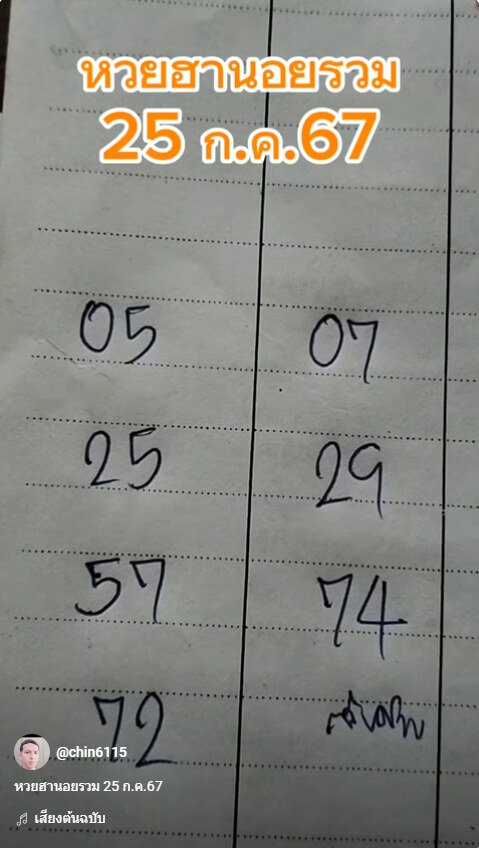 หวยฮานอยรวม
25 ก.ค.67
05 07
25 29
57 74
72
@chin6115
หวยฮานอยรวม 25 ก.ค.67
เสียงต้นฉบับ